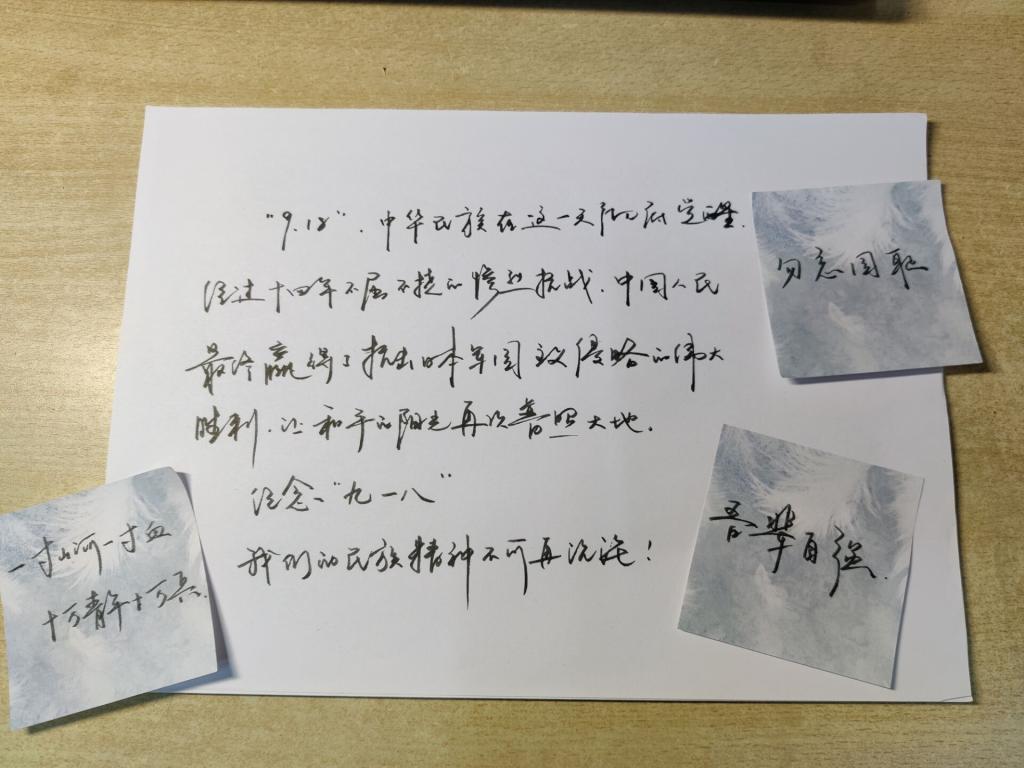 "9.18",中华民族在这一天彻底觉醒.
经过十四年不屈不挠的惨烈抗战.中国人民
最终赢得了抗击日本军国主义侵略的伟大
胜利.让和平的阳光再次普照大地.
纪念"九一八"
我们的民族精神不可再沉沦!
勿忘国耻
吾辈自强.
一寸山河一寸血
十万青年十万兵.